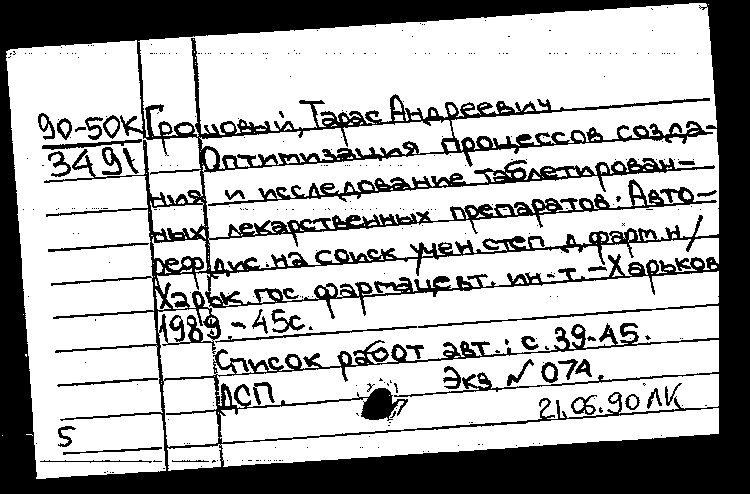 90-50К Грошовый, Тарас Андреевич.
3491 Оптимизация процессов созда-
ния и исследование таблетирован-
ных лекарственных препаратов: Авто-
реф дис. на соиск учен. степ д. фарм. н/
Харьк. гос. фармацевт. ин-т. - Харьков
1989. - 45с.
Список работ авт.: с. 39-45.
ДСП. Экз № 074.
21.06.90 ЛК
5